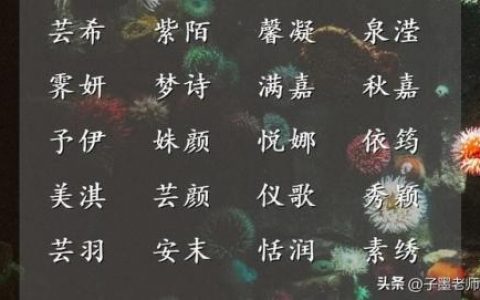 芸希 紫陌 馨凝 泉滢
霁妍 梦诗 满嘉 秋嘉
予伊 姝颜 悦娜 依筠
美淇 芸颜 仪歌 秀颖
芸羽 安末 恬润 素绣
头条 @子墨老师